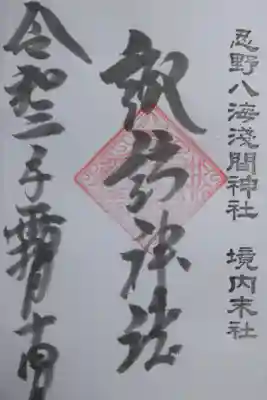 忍野八海淺間神社　境内末社
諏訪神社
令和二子霜月十四日